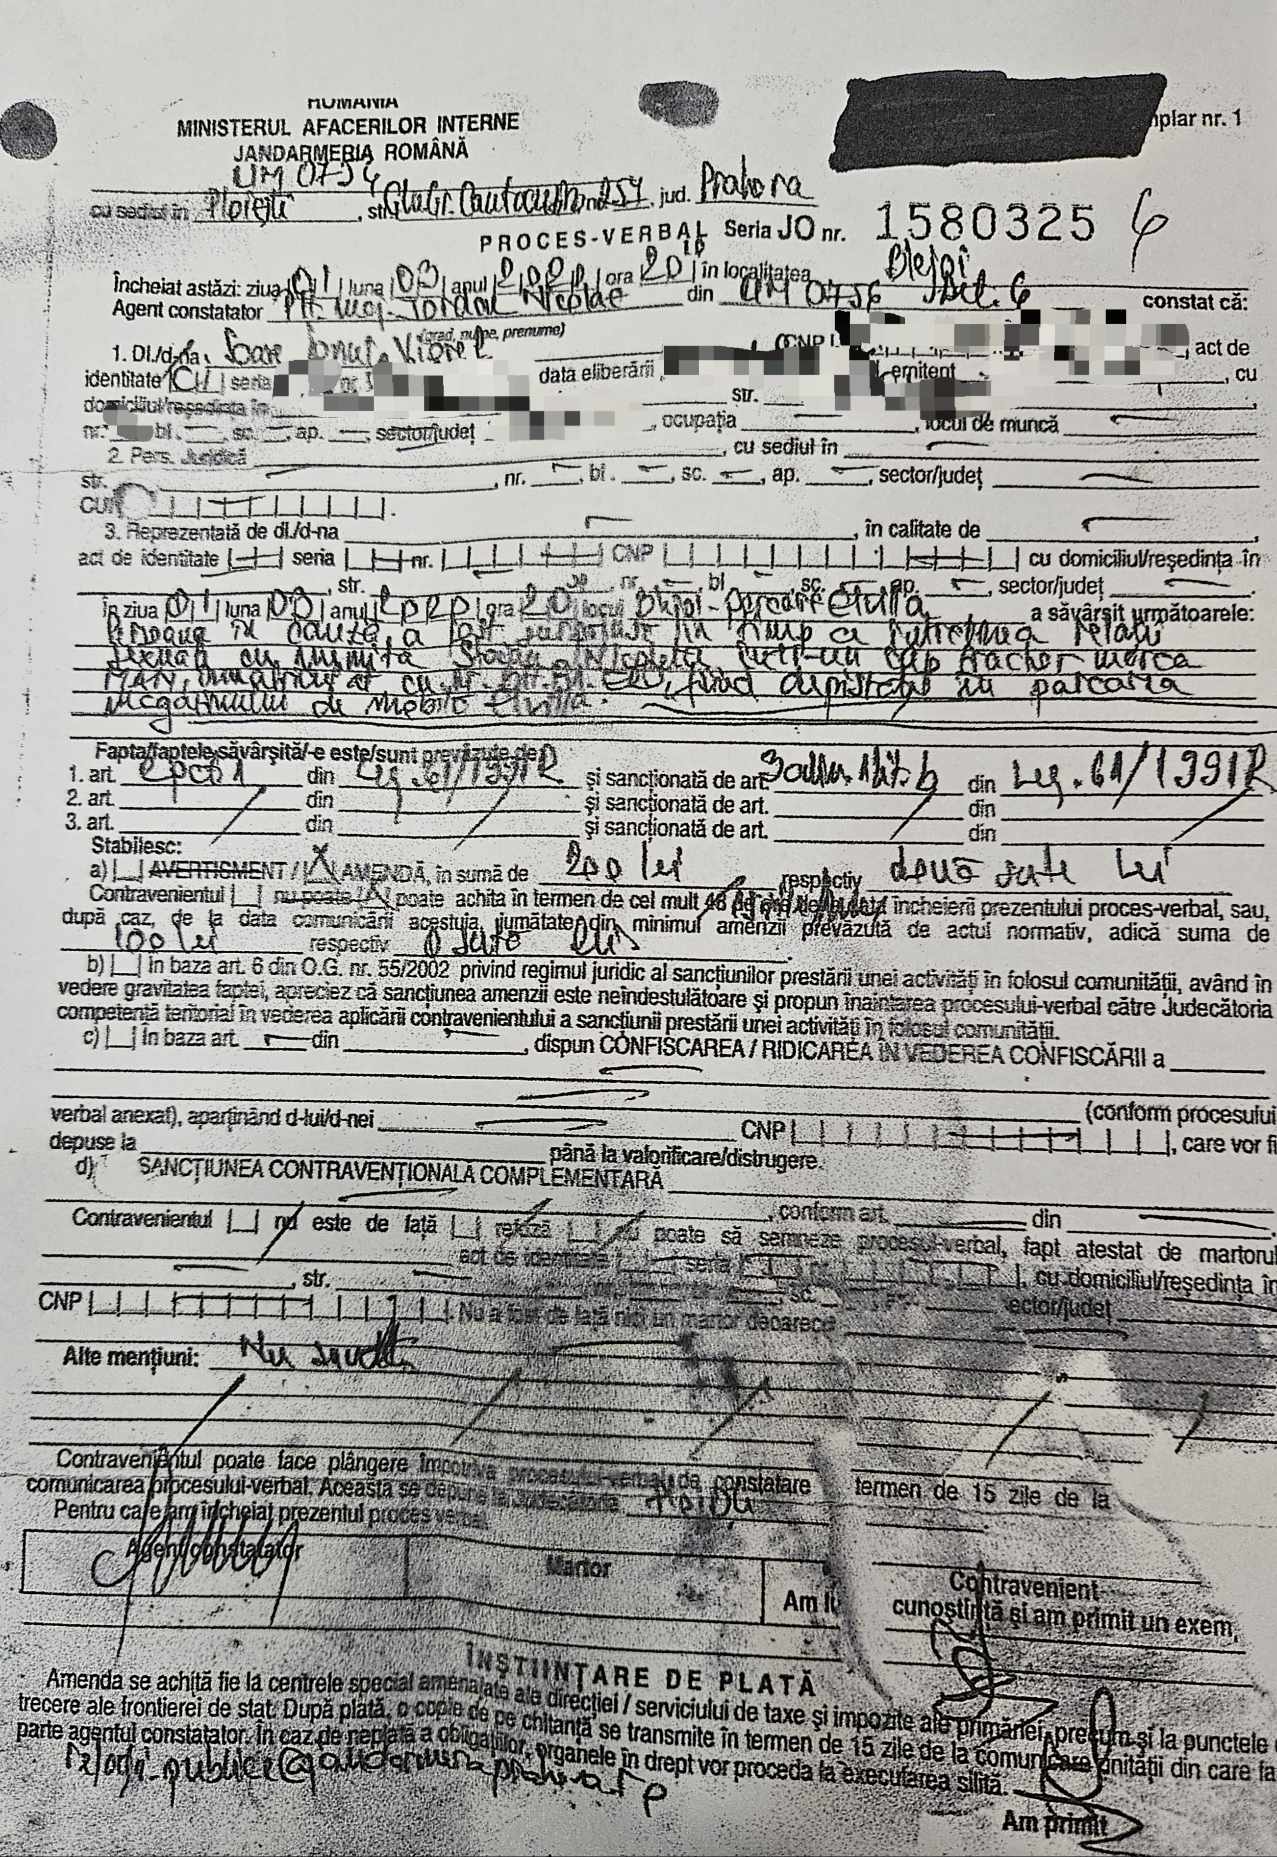 ROMÂNIA
MINISTERUL AFACERILOR INTERNE
JANDARMERIA ROMÂNĂ
mplar nr. 1
UM 0754
cu sediul în Ploiești, str. nr. 257, jud. Prahova
PROCES-VERBAL Seria JO nr. 1580325
Blejoi
Încheiat astăzi: ziua 01 luna 03 anul ora 20 în localitatea
Agent constatator Plt. maj. Iordac Nicolae din UM 0756 constat că:
(grad, nume, prenume)
1. Dl./d-na Soare Ionuț Viorel CNP act de
identitate CI seria nr. data eliberării emitent, cu
domiciliul/reședința în str.
nr. bl. sc. ap. sector/județ, ocupația, locul de muncă
2. Pers. Juridică, cu sediul în
str., nr., bl., sc., ap., sector/județ
CUI
3. Reprezentată de dl./d-na, în calitate de
act de identitate seria nr. CNP cu domiciliul/reședința în
, str. nr. bl. sc. ap., sector/județ
În ziua 01 luna 03 anul ora 20 locul Blejoi - parcare a săvârșit următoarele:
Persoana în cauză, a fost în timp ce întreținea relații
sexuale cu numita Nicoleta într-un cap tractor marca
MAN, înmatriculat cu nr. fiind depistat în parcarea
magazinului de mobilă
Fapta/faptele săvârșită/-e este/sunt prevăzute de
1. art. 2 pct 1 din Leg. 61/1991R și sancționată de art. 3 alin. 1 lit. b din Leg. 61/1991R
2. art. din și sancționată de art. din
3. art. din și sancționată de art. din
Stabilesc:
a) AVERTISMENT / X AMENDĂ, în sumă de 200 lei respectiv două sute lei
Contravenientul nu poate / X poate achita în termen de cel mult 48 de ore de la data încheierii prezentului proces-verbal, sau,
după caz, de la data comunicării acestuia, jumătate din minimul amenzii prevăzută de actul normativ, adică suma de
100 lei respectiv o sută lei.
b) În baza art. 6 din O.G. nr. 55/2002 privind regimul juridic al sancțiunilor prestării unei activități în folosul comunității, având în
vedere gravitatea faptei, apreciez că sancțiunea amenzii este neîndestulătoare și propun înaintarea procesului-verbal către Judecătoria
competentă teritorial în vederea aplicării contravenientului a sancțiunii prestării unei activități în folosul comunității.
c) În baza art. din, dispun CONFISCAREA / RIDICAREA ÎN VEDEREA CONFISCĂRII a
(conform procesului
verbal anexat), aparținând d-lui/d-nei CNP, care vor fi
depuse la până la valorificare/distrugere.
d) SANCȚIUNEA CONTRAVENȚIONALĂ COMPLEMENTARĂ
, conform art. din
Contravenientul nu este de față refuză nu poate să semneze procesul-verbal, fapt atestat de martorul
act de identitate seria nr., cu domiciliul/reședința în
, str. sc. sector/județ
CNP. Nu a fost de față nici un martor deoarece
Alte mențiuni: Nu sunt.
Contravenientul poate face plângere împotriva procesului-verbal de constatare termen de 15 zile de la
comunicarea procesului-verbal. Aceasta se depune la Judecătoria
Pentru care am încheiat prezentul proces verbal
Agent constatator
Martor
Contravenient
Am l cunoștință și am primit un exem.
ÎNȘTIINȚARE DE PLATĂ
Amenda se achită fie la centrele special amenajate ale direcției / serviciului de taxe și impozite ale primăriei, precum și la punctele
trecere ale frontierei de stat. După plată, o copie de pe chitanță se transmite în termen de 15 zile de la comunicare unității din care fa
parte agentul constatator. În caz de neplată a obligațiilor, organele în drept vor proceda la executarea silită.
Am primit